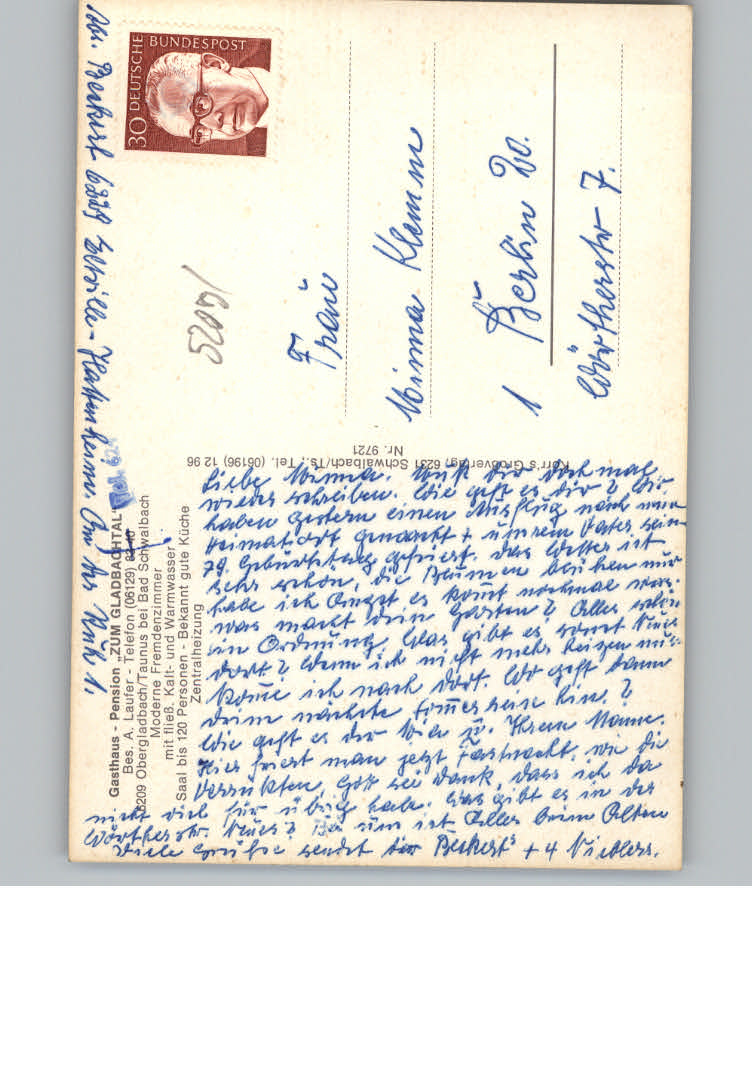 Gasthaus - Pension „ZUM GLADBACHTAL"
Bes. A. Laufer - Telefon (06129)
6209 Obergladbach/Taunus bei Bad Schwalbach
Moderne Fremdenzimmer
mit fließ. Kalt- und Warmwasser
Saal bis 120 Personen - Bekannt gute Küche
Zentralheizung
Liebe Minna. Muß dir doch mal
wieder schreiben. Wie geht es dir? Wir
haben gestern einen Ausflug nach
Heimatort gemacht + unsrem Vater sein
79. Geburtstag gefeiert. Das Wetter ist
sehr schön, die Bäumen blühen nur
habe ich Angst es kommt nochmal was.
was macht dein Garten? Alles schön
in Ordnung. Was gibt es sonst Neues
dort? Wenn ich nicht mehr heizen muß
komme ich nach dort. Wo geht dann
deine nächste hin?
Wie geht es der Ihrem Manne.
Hier feiert man jetzt Fastnacht, wie die
Verrückten. Gott sei Dank, dass ich da
nicht viel für übrig habe. Was gibt es in der
Wörtherstr. Neues? Bei uns ist Alles beim Alten
Viele Grüße sendet dir Beckert's + 4
Korr's Großverlag, 6231 Schwalbach/Ts., Tel. (06196) 12 96
Nr. 9721
Abs. Beckert 6229 - Hattenheim. Auf der 1.
30 DEUTSCHE BUNDESPOST
5209/
Frau
Minna Klemm
1 Berlin 20.
Wörtherstr 7.